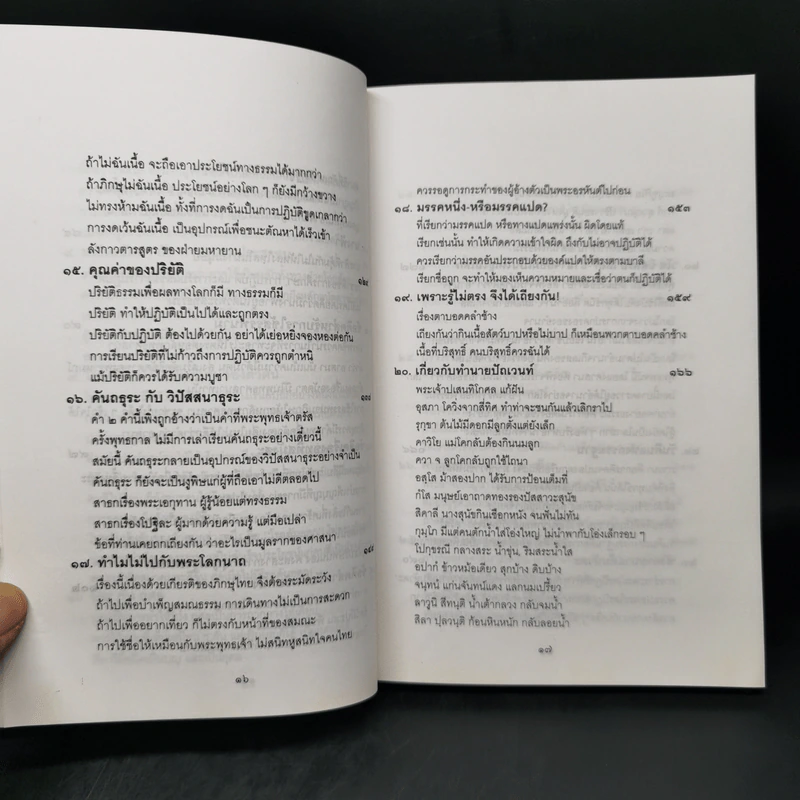 ถ้าไม่ฉันเนื้อ จะถือเอาประโยชน์ทางธรรมได้มากกว่า
ถ้าภิกษุไม่ฉันเนื้อ ประโยชน์อย่างโลก ๆ ก็ยังมีกว้างขวาง
ไม่ทรงห้ามฉันเนื้อ ทั้งที่การงดฉันเป็นการปฏิบัติขูดเกลากว่า
การงดเว้นฉันเนื้อ เป็นอุปกรณ์เพื่อชนะตัณหาได้เร็วเข้า
ลังกาวตารสูตร ของฝ่ายมหายาน
๑๕. คุณค่าของปริยัติ
ปริยัติธรรมเพื่อผลทางโลกก็มี ทางธรรมก็มี
ปริยัติ ทำให้ปฏิบัติเป็นไปได้และถูกตรง
ปริยัติกับปฏิบัติ ต้องไปด้วยกัน อย่าได้เย่อหยิ่งจองหองต่อกัน
การเรียนปริยัติที่ไม่ก้าวถึงการปฏิบัติควรถูกตำหนิ
แม้ปริยัติก็ควรได้รับความบูชา
๑๖. คันถธุระ กับ วิปัสสนาธุระ
คำ ๒ คำนี้เพิ่งถูกอ้างว่าเป็นคำที่พระพุทธเจ้าตรัส
ครั้งพุทธกาล ไม่มีการเล่าเรียนคันถธุระอย่างเดี๋ยวนี้
สมัยนี้ คันถธุระกลายเป็นอุปกรณ์ของวิปัสสนาธุระอย่างจำเป็น
คันถธุระ ก็ยังจะเป็นงูพิษแก่ผู้ที่ถือเอาไม่ดีตลอดไป
สาธกเรื่องพระเอกุทาน ผู้รู้น้อยแต่ทรงธรรม
สาธกเรื่องโปฐิละ ผู้มากด้วยความรู้ แต่มือเปล่า
ข้อที่ท่านเคยถกเถียงกัน ว่าอะไรเป็นมูลรากของศาสนา
๑๗. ทำไมไม่ไปกับพระโลกนาถ
เรื่องนี้เนื่องด้วยเกียรติของภิกษุไทย จึงต้องระมัดระวัง
ถ้าไปเพื่อบำเพ็ญสมณธรรม การเดินทางไม่เป็นการสะดวก
ถ้าไปเพื่ออยากเที่ยว ก็ไม่ตรงกับหน้าที่ของสมณะ
การใช้ชื่อให้เหมือนกับพระพุทธเจ้า ไม่สนิทหูสนิทใจคนไทย
๑๖
ควรรอดูการกระทำของผู้อ้างตัวเป็นพระอรหันต์ไปก่อน
๑๘. มรรคหนึ่ง-หรือมรรคแปด? ๑๕๓
ที่เรียกว่ามรรคแปด หรือทางแปดแพร่งนั้น ผิดโดยแท้
เรียกเช่นนั้น ทำให้เกิดความเข้าใจผิด ถึงกับไม่อาจปฏิบัติได้
ควรเรียกว่ามรรคอันประกอบด้วยองค์แปดให้ตรงตามบาลี
เรียกชื่อถูก จะทำให้มองเห็นความหมายและเชื่อว่าตนก็ปฏิบัติได้
๑๙. เพราะรู้ไม่ตรง จึงได้เถียงกัน! ๑๕๙
เรื่องตาบอดคลำช้าง
เถียงกันว่ากินเนื้อสัตว์บาปหรือไม่บาป ก็เหมือนพวกตาบอดคลำช้าง
เนื้อที่บริสุทธิ์ คนบริสุทธิ์ควรฉันได้
๒๐. เกี่ยวกับทำนายปัถเวนท์ ๑๖๖
พระเจ้าปเสนทิโกศล แก้ฝัน
อุสภา โควิ่งจากสี่ทิศ ทำท่าจะชนกันแล้วเลิกราไป
รุกฺขา ต้นไม้มีดอกมีลูกตั้งแต่ยังเล็ก
คาวิโย แม่โคกลับต้องกินนมลูก
ควา จ ลูกโคกลับถูกใช้ไถนา
อสฺโส ม้าสองปาก ได้รับการป้อนเต็มที่
กํโส มนุษย์เอาถาดทองรองปัสสาวะสุนัข
สิคาลี นางสุนัขกินเชือกหนัง จนฟั่นไม่ทัน
กุมฺโภ มีแต่คนตักน้ำใส่โอ่งใหญ่ ไม่นำพากับโอ่งเล็กรอบ ๆ
โปกฺขรณี กลางสระ น้ำขุ่น, ริมสระน้ำใส
อปากํ ข้าวหม้อเดียว สุกบ้าง ดิบบ้าง
จนฺทนํ แก่นจันทน์แดง แลกนมเปรี้ยว
ลาวูนิ สีทนฺติ น้ำเต้ากลวง กลับจมน้ำ
สิลา ปฺลวนฺติ ก้อนหินหนัก กลับลอยน้ำ
๑๗